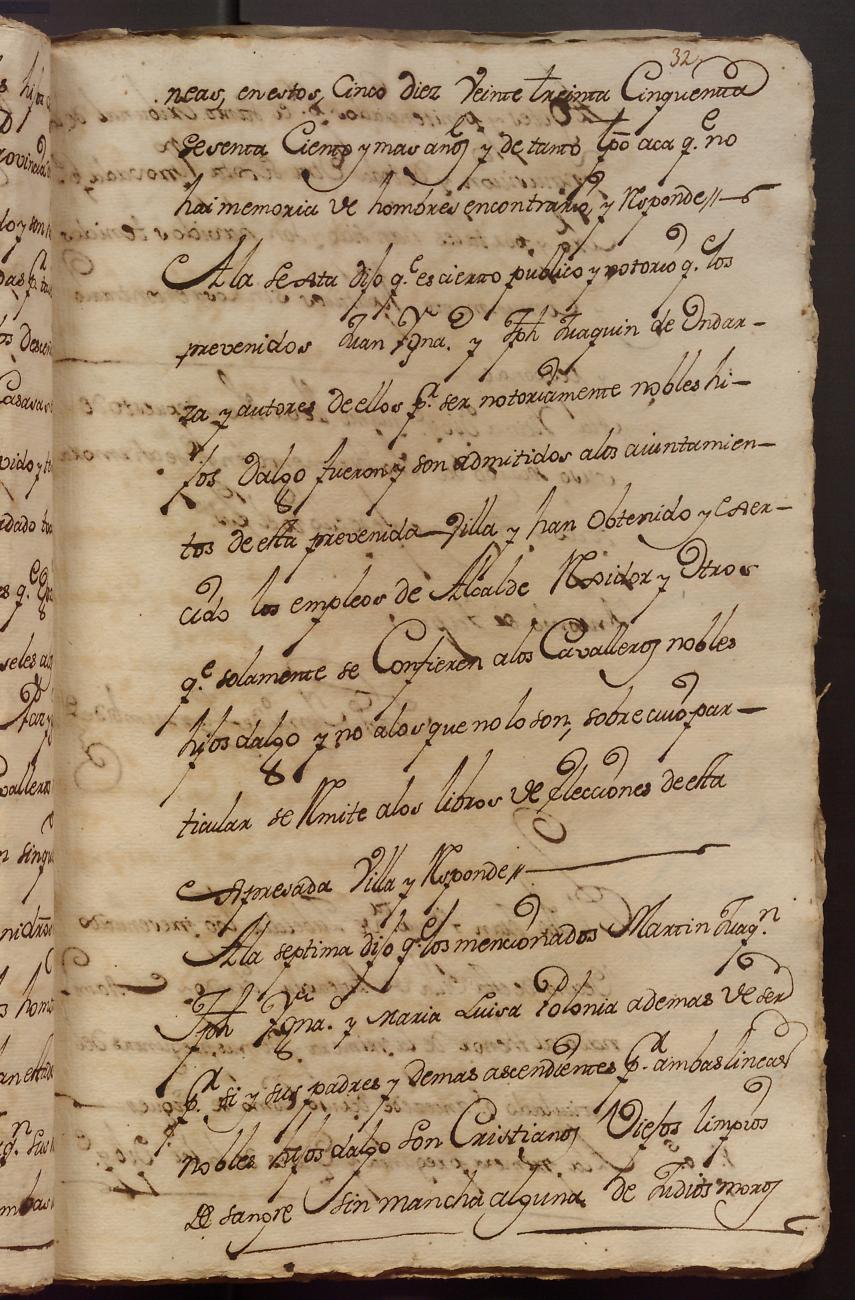 32
neas, en estos, Cinco diez Veinte treinta Cinquenta
sesenta Ciento y mas años y de tanto tpõ aca q.e no
hai memoria de hombres en contrario, y Responde//
A la sexta dijo q.e es cierto publico y notorio q.e los
prevenidos Juan Ygna.o y Jph Juaquin de Ondar-
za y autores de ellos p.r ser notoriamente nobles hi-
jos dalgo fueron y son admitidos a los aiuntamien-
tos de esta prevenida Villa y han Obtenido y exer-
cido los empleos de Alcalde Rexidor y Otros
q.e solamente se Confieren a los Cavalleros nobles
hijos dalgo y no a los que no lo son, sobre cuio par-
ticular se Rmite a los libros de elecciones de esta
expresada Villa y Rsponde//
A la septima dijo q.e los mencionados Martin Juaq.n
Jph Ygna.o y Maria Luisa Polonia ademas de ser
p.r si y sus padres y demas ascendientes p.r ambas lineas
nobles hijos dalgo son Cristianos Viejos limpios
de sangre sin mancha alguna de Judios moros